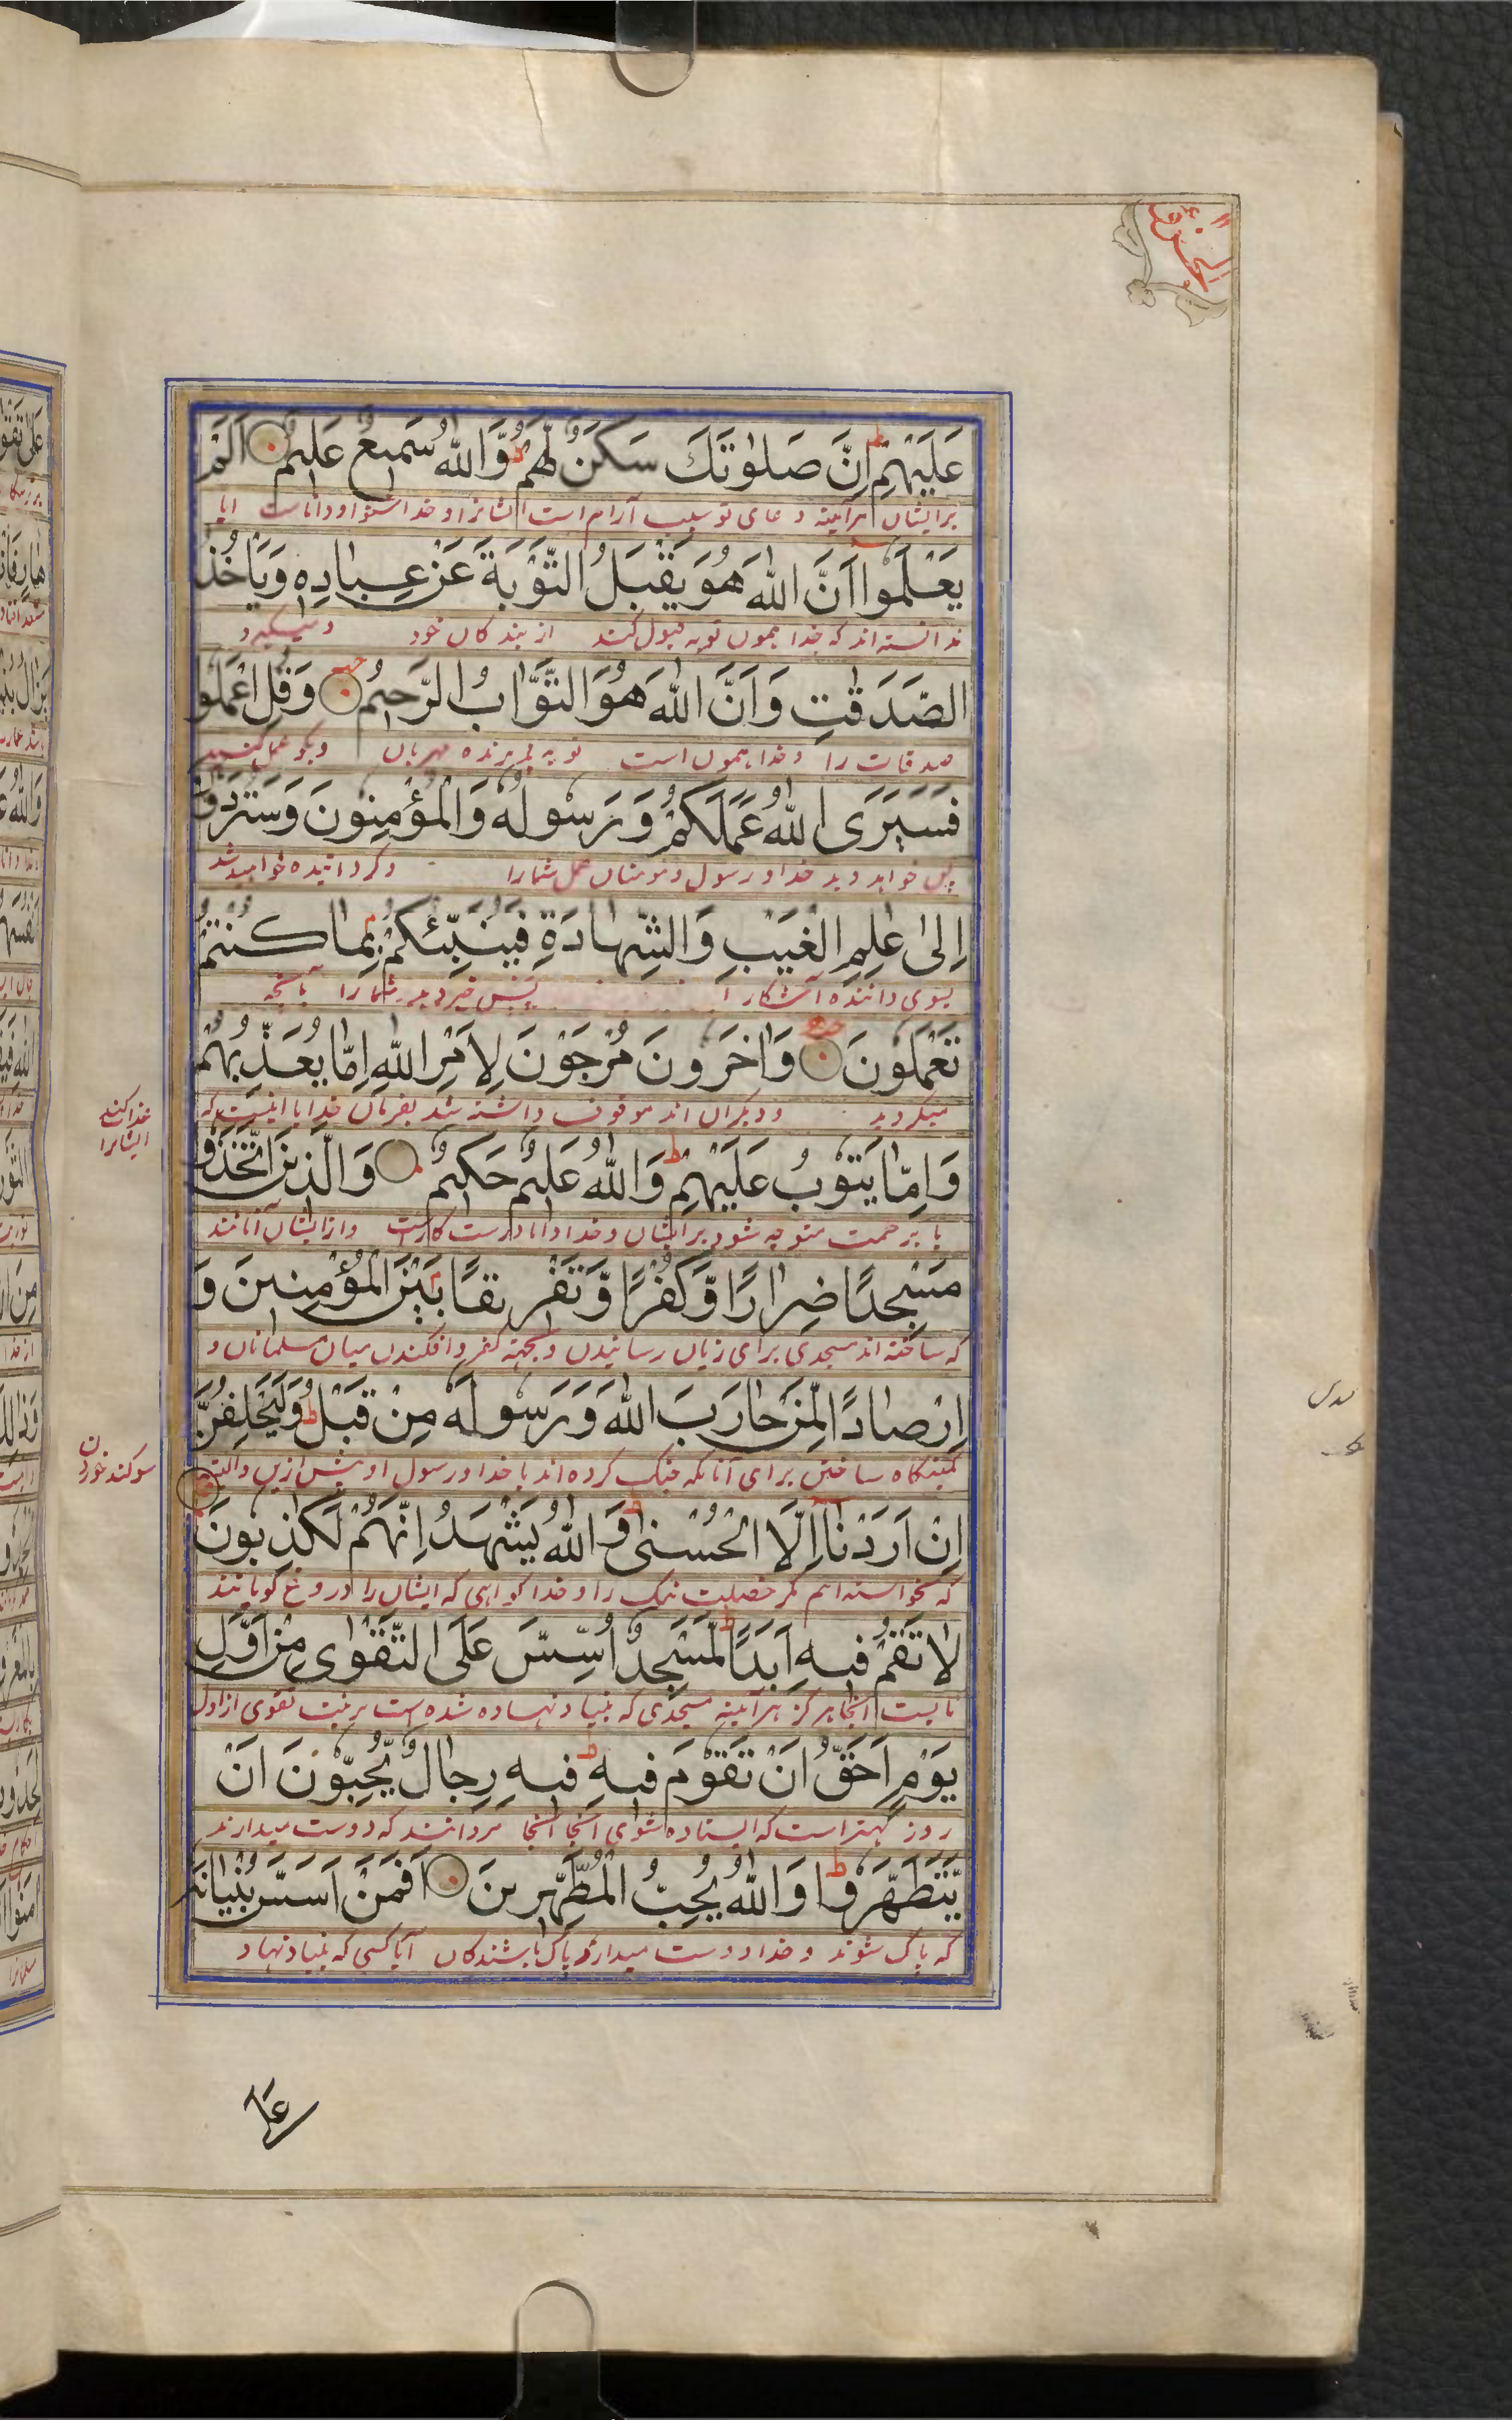 عَلَيْهِمْ اِنَّ صَلٰوتَكَ سَكَنٌ لَّهُمْ وَاللّٰهُ سَمِيعٌ عَلِيمٌ اَلَمْ
برایشان هرآینه دعای تو سبب آرام است ایشانرا و خدا شنوا و داناست ایا
يَعْلَمُوا اَنَّ اللّٰهَ هُوَ يَقْبَلُ التَّوْبَةَ عَنْ عِبَادِهِ وَيَاْخُذُ
ندانسته اند که خدا همون توبه قبول کند از بندکان خود و میکیرد
الصَّدَقٰتِ وَاَنَّ اللّٰهَ هُوَ التَّوَّابُ الرَّحِيمُ وَقُلِ اعْمَلُوا
صدقات را و خدا همون است توبه پذیرنده مهربان وبکو عمل کنید
فَسَيَرَى اللّٰهُ عَمَلَكُمْ وَرَسُولُهُ وَالْمُؤْمِنُونَ وَسَتُرَدُّونَ
پس خواهد دید خدا و رسول و مومنان عمل شمارا و کردانیده خواهید شد
اِلٰى عٰلِمِ الْغَيْبِ وَالشَّهَادَةِ فَيُنَبِّئُكُمْ بِمَا كُنْتُمْ
بسوی داننده آشکارا پس خبر دهد شمارا بآنچه
تَعْمَلُونَ وَاٰخَرُونَ مُرْجَوْنَ لِاَمْرِ اللّٰهِ اِمَّا يُعَذِّبُهُمْ
میکردید و دیکران اند موقوف داشته شد بفرمان خدا یا اینست که
عذاب کند
ایشانرا
وَاِمَّا يَتُوبُ عَلَيْهِمْ وَاللّٰهُ عَلِيمٌ حَكِيمٌ وَالَّذِينَ اتَّخَذُوا
یا برحمت متوجه شود برایشان و خدا دانا درست کارست و از ایشان آنانند
مَسْجِدًا ضِرَارًا وَّكُفْرًا وَّتَفْرِيقًا بَيْنَ الْمُؤْمِنِينَ وَ
که ساخته اند مسجدی برای زیان رسانیدن و بجهة کفر و افکندن میان مسلمانان و
اِرْصَادًا لِّمَنْ حَارَبَ اللّٰهَ وَرَسُولَهُ مِنْ قَبْلُ وَلَيَحْلِفُنَّ
کمینکاه ساختن برای آنانکه جنک کرده اند با خدا و رسول او پیش ازین والبته
سوکند خوردن
اِنْ اَرَدْنَا اِلَّا الْحُسْنٰى وَاللّٰهُ يَشْهَدُ اِنَّهُمْ لَكٰذِبُونَ
که نخواسته ایم مکر خصلت نیک را و خدا کواهی که ایشان را دروغ کویانند
لَا تَقُمْ فِيهِ اَبَدًا لَمَسْجِدٌ اُسِّسَ عَلَى التَّقْوٰى مِنْ اَوَّلِ
نایست آنجا هرکز هرآینه مسجدی که بنیاد نهاده شده است برنیت تقوی از اول
يَوْمٍ اَحَقُّ اَنْ تَقُومَ فِيهِ فِيهِ رِجَالٌ يُّحِبُّونَ اَنْ
روز بهتر است که ایستاده شوی آنجا آنجا مردانند که دوست میدارند
يَّتَطَهَّرُوا وَاللّٰهُ يُحِبُّ الْمُطَّهِّرِينَ اَفَمَنْ اَسَّسَ بُنْيَانَهُ
که پاک شوند و خدا دوست میدارد پاک باشندکان آیا کسی که بنیاد نهاد
عَلٰى